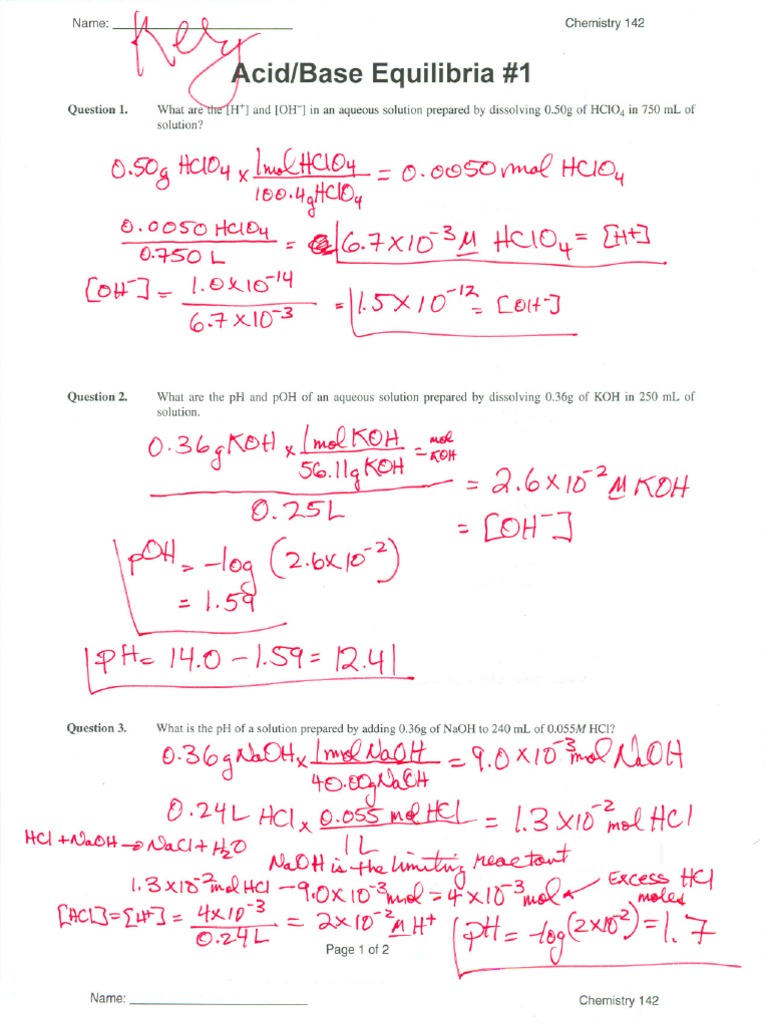 Name: Key Chemistry 142
Acid/Base Equilibria #1
Question 1. What are the [H⁺] and [OH⁻] in an aqueous solution prepared by dissolving 0.50g of HClO₄ in 750 mL of
solution?
0.50g HClO₄ x 1mol HClO₄ = 0.0050 mol HClO₄
100.4g HClO₄
0.0050 HClO₄ = 6.7 x 10⁻³ M HClO₄ = [H+]
0.750 L
[OH⁻] = 1.0 x 10⁻¹⁴ = 1.5 x 10⁻¹² = [OH⁻]
6.7 x 10⁻³
Question 2. What are the pH and pOH of an aqueous solution prepared by dissolving 0.36g of KOH in 250 mL of
solution.
0.36g KOH x 1 mol KOH = mol KOH
56.11g KOH
= 2.6 x 10⁻² M KOH
0.25L
= [OH⁻]
pOH = -log (2.6x10⁻²)
= 1.59
pH = 14.0 - 1.59 = 12.41
Question 3. What is the pH of a solution prepared by adding 0.36g of NaOH to 240 mL of 0.055M HCl?
0.36g NaOH x 1 mol NaOH = 9.0 x 10⁻³ mol NaOH
40.00g NaOH
0.24L HCl x 0.055 mol HCl = 1.3 x 10⁻² mol HCl
1L
HCl + NaOH → NaCl + H₂O
NaOH is the limiting reactant
1.3 x 10⁻² mol HCl - 9.0 x 10⁻³ mol = 4 x 10⁻³ mol ← Excess HCl moles
[HCl] = [H+] = 4x10⁻³ = 2x10⁻² M H⁺
0.24L
pH = -log(2x10⁻²) = 1.7
Page 1 of 2
Name: Chemistry 142